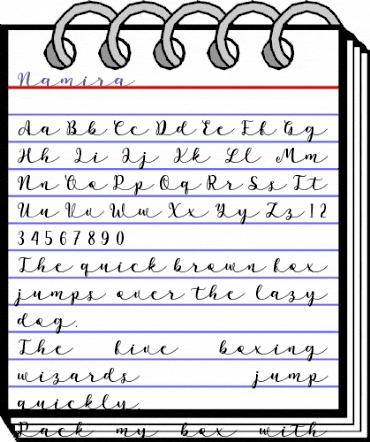 Namira
Aa Bb Cc Dd Ee Ff Gg
Hh Ii Jj Kk Ll Mm
Nn Oo Pp Qq Rr Ss Tt
Uu Vv Ww Xx Yy Zz 1 2
3 4 5 6 7 8 9 0
The quick brown fox
jumps over the lazy
dog.
The five boxing
wizards jump
quickly.
Pack my box with